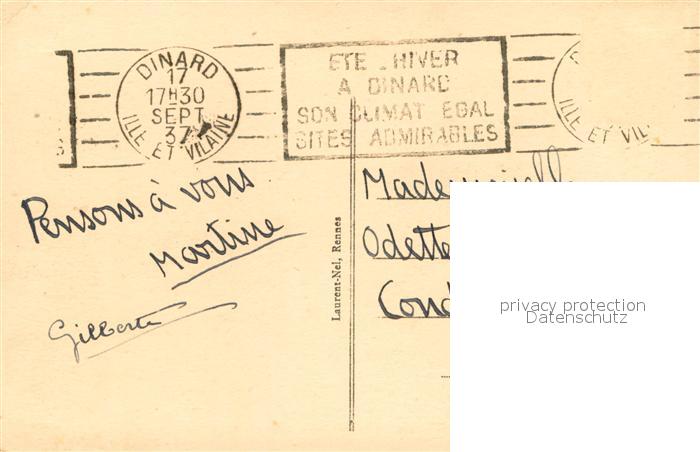 DINARD
17
17H30
SEPT
37
ILLE ET VILAINE
ETE _ HIVER
A DINARD
SON CLIMAT EGAL
SITES ADMIRABLES
ILLE ET VIL
Pensons à vous
Martine
Gilberte
Laurent-Nel, Rennes
Mademoiselle
Odette
Cond
privacy protection
Datenschutz